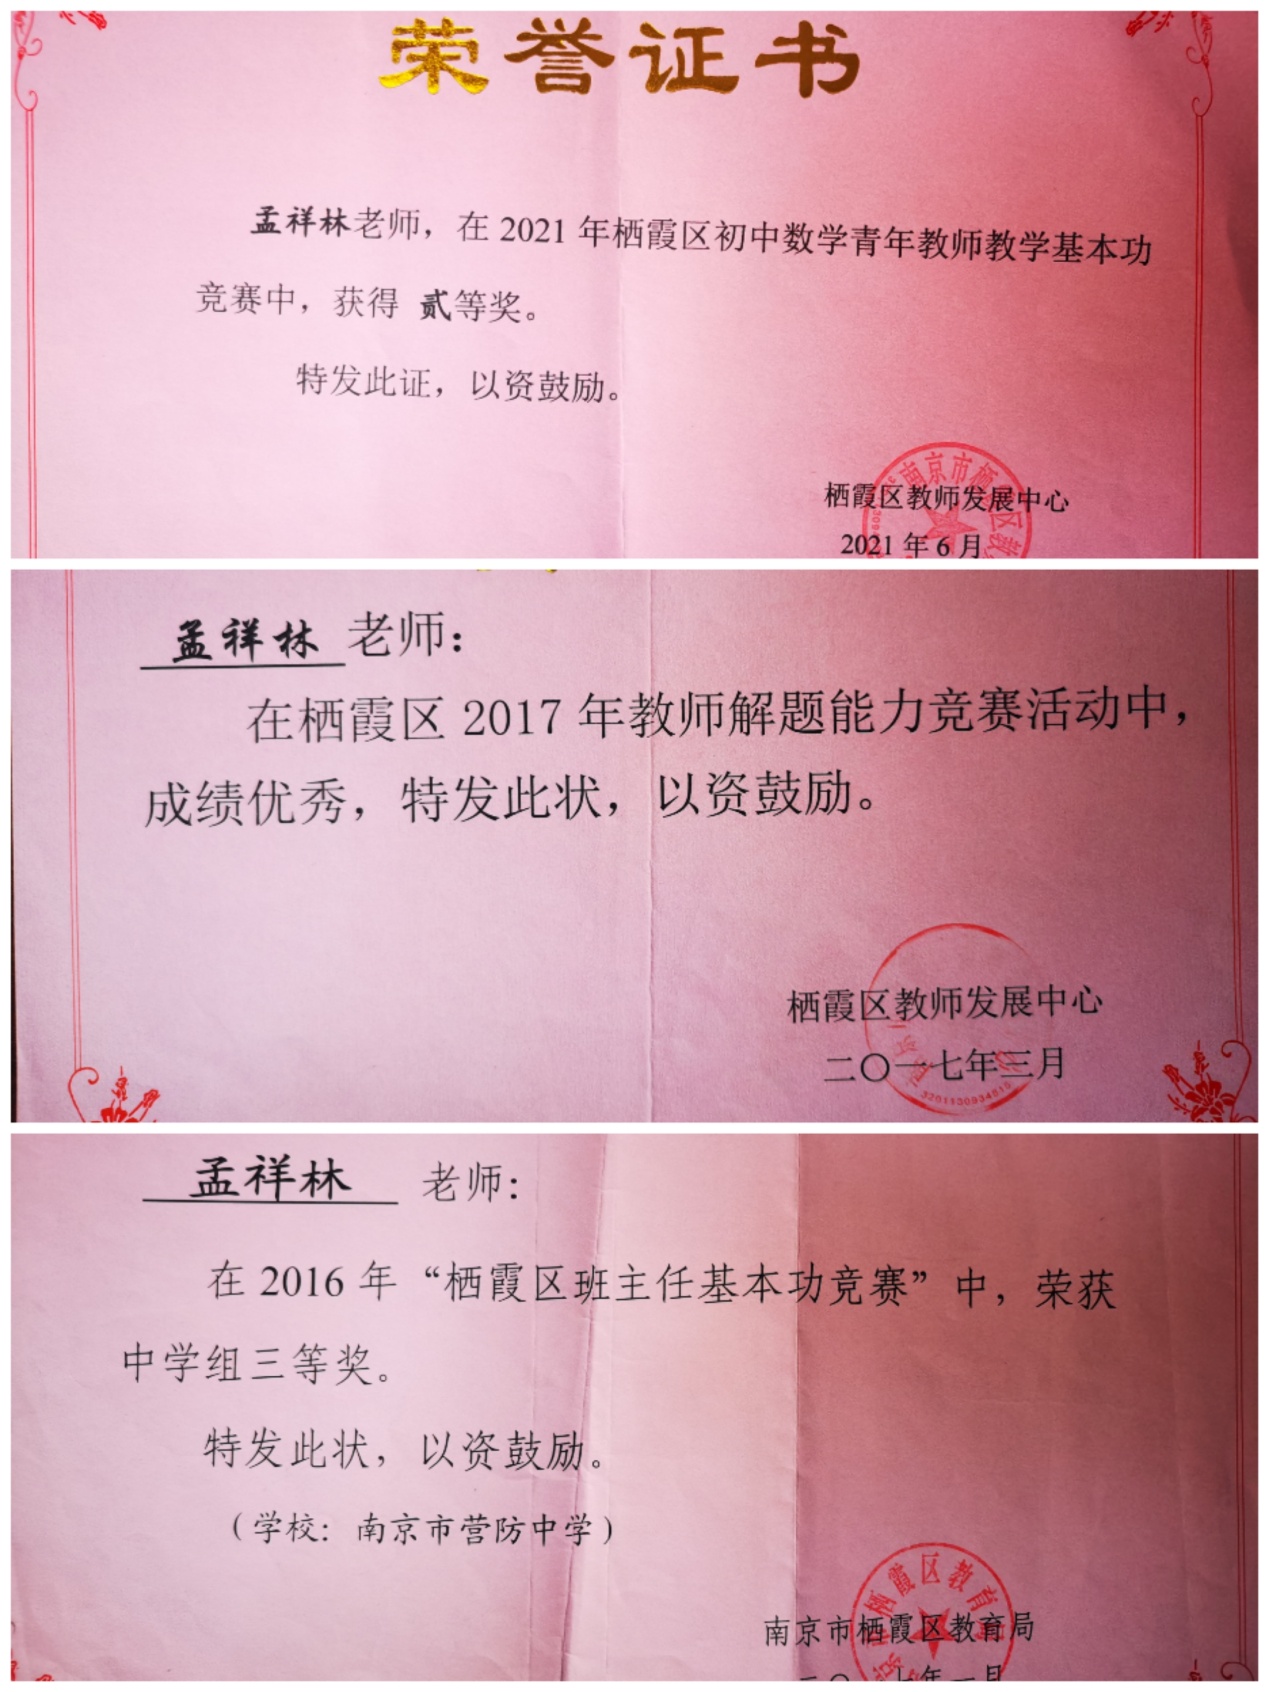 荣誉证书
孟祥林老师，在 2021 年栖霞区初中数学青年教师教学基本功
竞赛中，获得 贰等奖。
特发此证，以资鼓励。
南京市栖霞区教
栖霞区教师发展中心
2021 年 6 月
孟祥林 老师：
在栖霞区 2017 年教师解题能力竞赛活动中，
成绩优秀，特发此状，以资鼓励。
栖霞区教师发展中心
二〇一七年三月
孟祥林 老师：
在 2016 年“栖霞区班主任基本功竞赛”中，荣获
中学组三等奖。
特发此状，以资鼓励。
（学校：南京市营防中学）
栖霞区教育局
南京市栖霞区教育局
二〇一七年一月